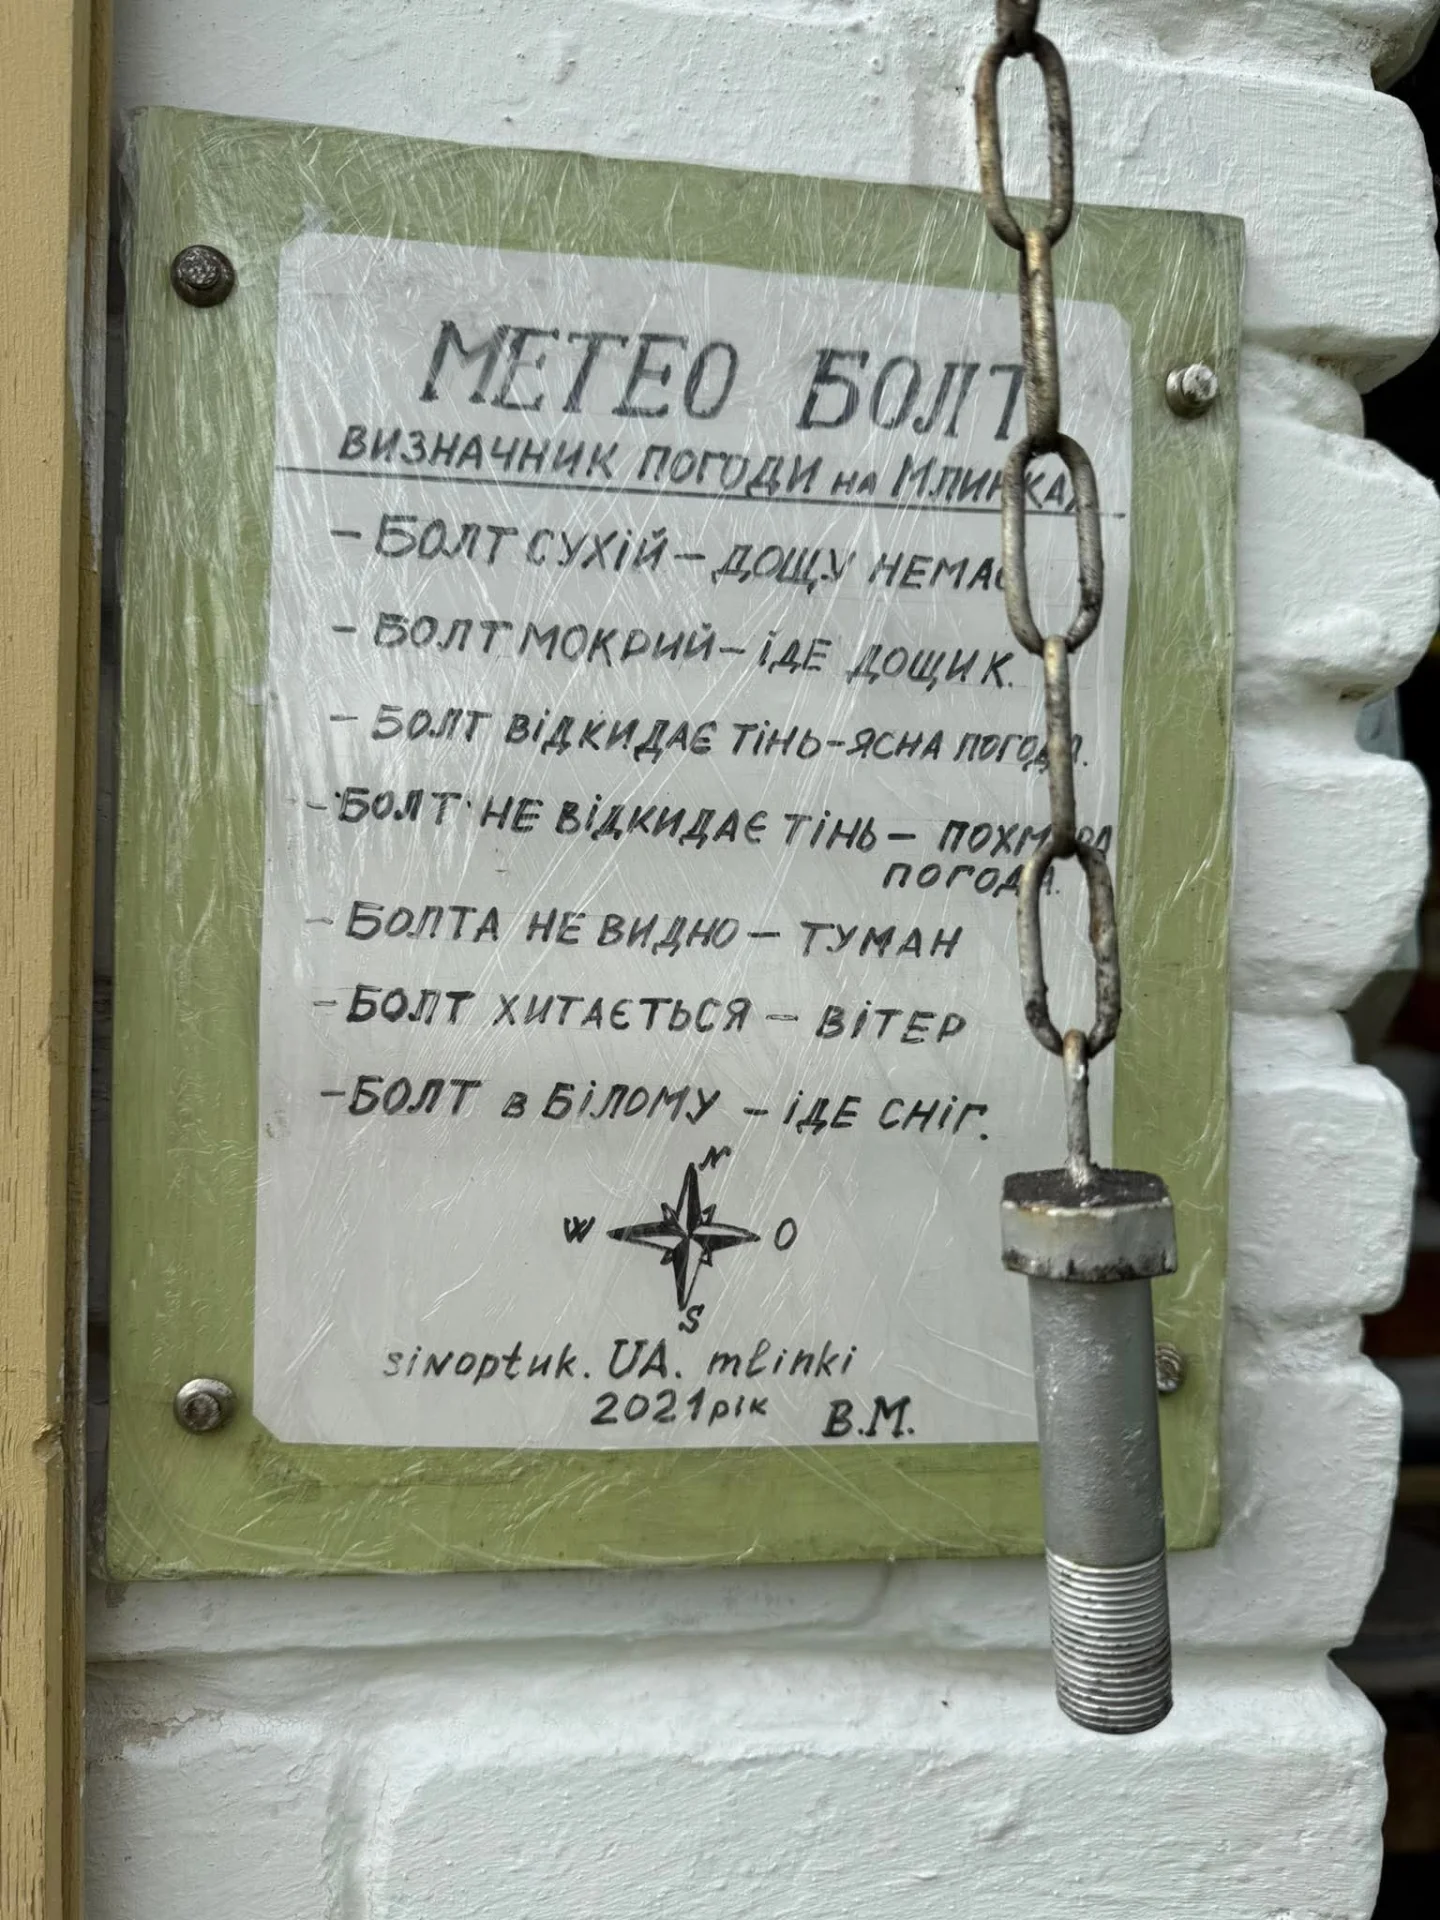 МЕТЕО БОЛТ
ВИЗНАЧНИК ПОГОДИ на МЛИНКАХ
- БОЛТ СУХІЙ - ДОЩУ НЕМАЄ
- БОЛТ МОКРИЙ - ІДЕ ДОЩИК.
- БОЛТ ВІДКИДАЄ ТІНЬ - ЯСНА ПОГОДА.
- БОЛТ НЕ ВІДКИДАЄ ТІНЬ - ПОХМУРА
ПОГОДА.
- БОЛТА НЕ ВИДНО - ТУМАН
- БОЛТ ХИТАЄТЬСЯ - ВІТЕР
- БОЛТ в БІЛОМУ - ІДЕ СНІГ.
N
W O
S
sinoptuk. UA. mlinki
2021 рік В.М.